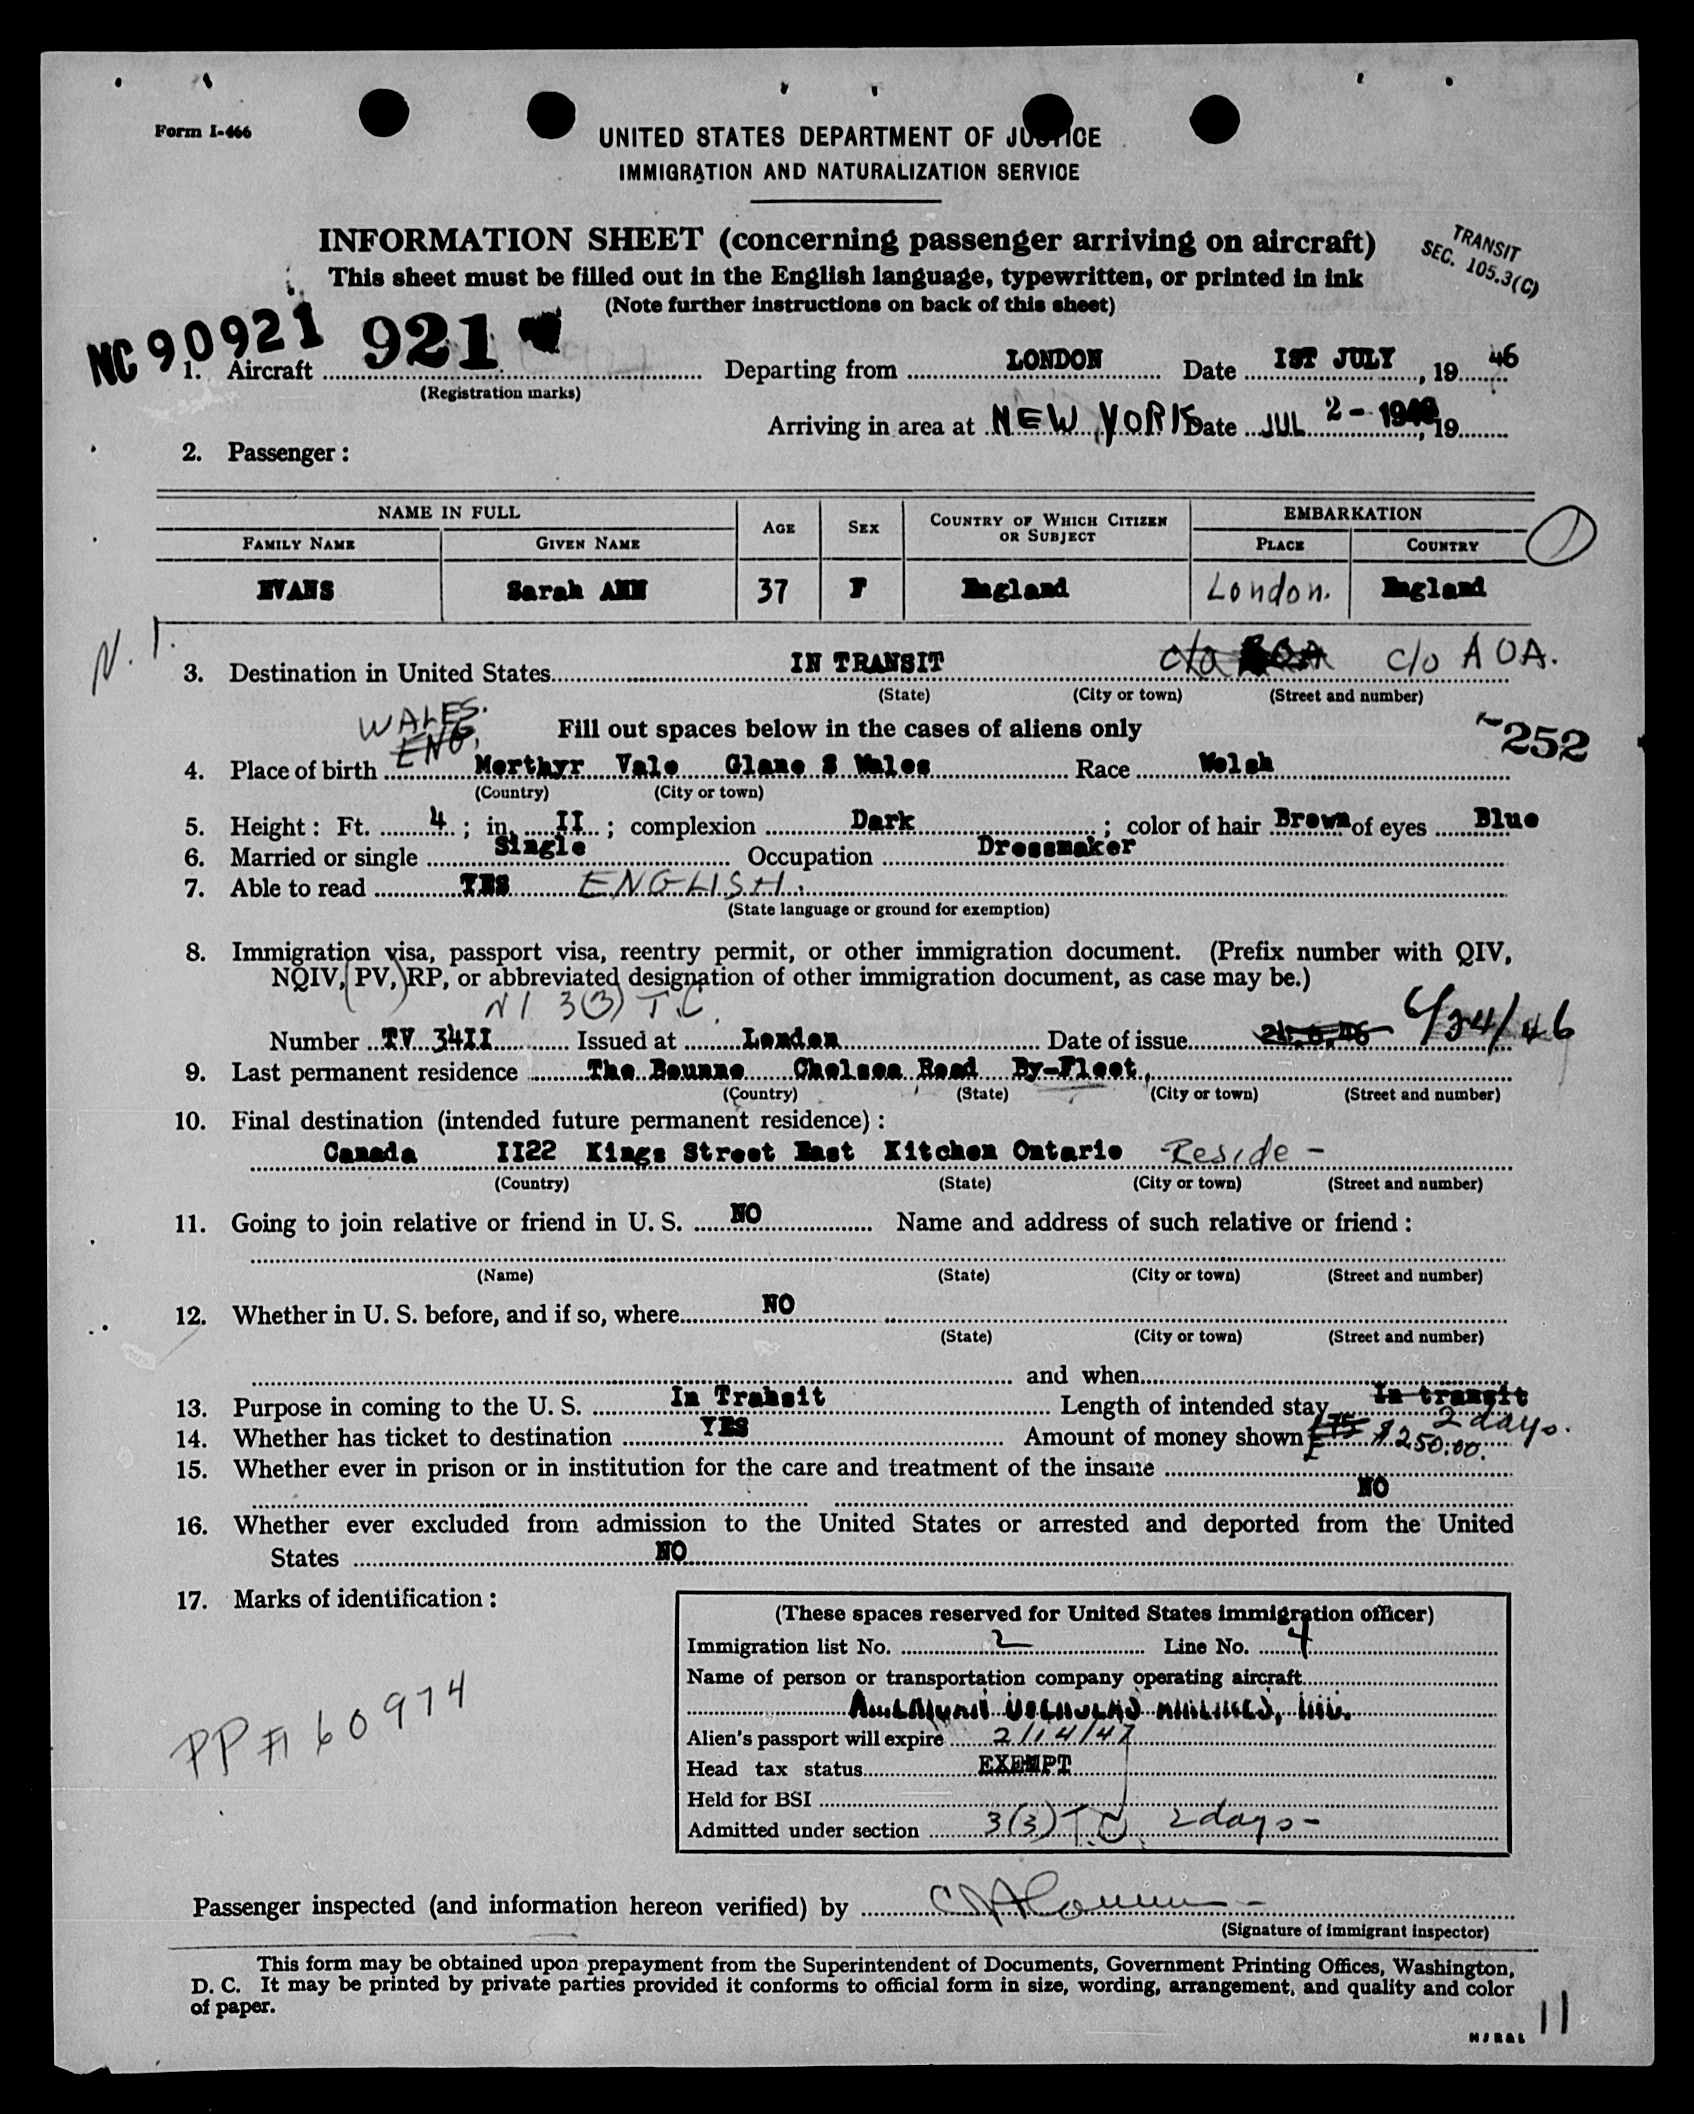 Form I-466
UNITED STATES DEPARTMENT OF JUSTICE
IMMIGRATION AND NATURALIZATION SERVICE
INFORMATION SHEET (concerning passenger arriving on aircraft)
TRANSIT
SEC. 105.3(C)
This sheet must be filled out in the English language, typewritten, or printed in ink
(Note further instructions on back of this sheet)
NC 90921 921
1. Aircraft Departing from LONDON Date IST JULY, 19 46
(Registration marks)
Arriving in area at NEW YORK Date JUL 2 - 1946, 19
2. Passenger:
NAME IN FULL AGE SEX COUNTRY OF WHICH CITIZEN OR SUBJECT EMBARKATION
FAMILY NAME GIVEN NAME PLACE COUNTRY
EVANS Sarah ANN 37 F England London. England
N.I.
3. Destination in United States IN TRANSIT c/o AOA c/o AOA.
(State) (City or town) (Street and number)
WALES.
ENG. Fill out spaces below in the cases of aliens only
252
4. Place of birth Merthyr Vale Glane S Wales Race Welsh
(Country) (City or town)
5. Height: Ft. 4; in. II; complexion Dark; color of hair Brown of eyes Blue
6. Married or single Single Occupation Dressmaker
7. Able to read YES ENGLISH.
(State language or ground for exemption)
8. Immigration visa, passport visa, reentry permit, or other immigration document. (Prefix number with QIV,
NQIV, PV, RP, or abbreviated designation of other immigration document, as case may be.)
NI 3(3) T.C.
Number TV 34II Issued at London Date of issue 24.6.46 6/24/46
9. Last permanent residence The Bounne Chelsea Road By-Fleet,
(Country) (State) (City or town) (Street and number)
10. Final destination (intended future permanent residence):
Canada II22 Kings Street East Kitchen Ontario Reside -
(Country) (State) (City or town) (Street and number)
11. Going to join relative or friend in U. S. NO Name and address of such relative or friend:
(Name) (State) (City or town) (Street and number)
12. Whether in U. S. before, and if so, where NO
(State) (City or town) (Street and number)
and when
13. Purpose in coming to the U. S. In Transit Length of intended stay In transit
2 days.
14. Whether has ticket to destination YES Amount of money shown £75 $250.00.
15. Whether ever in prison or in institution for the care and treatment of the insane
NO
16. Whether ever excluded from admission to the United States or arrested and deported from the United
States NO
17. Marks of identification:
PP # 60974
(These spaces reserved for United States immigration officer)
Immigration list No. 2 Line No. 4
Name of person or transportation company operating aircraft
American Overseas Airlines, Inc.
Alien's passport will expire 2/14/47
Head tax status EXEMPT
Held for BSI
Admitted under section 3(3) T.C. 2 days -
Passenger inspected (and information hereon verified) by
(Signature of immigrant inspector)
This form may be obtained upon prepayment from the Superintendent of Documents, Government Printing Offices, Washington,
D. C. It may be printed by private parties provided it conforms to official form in size, wording, arrangement, and quality and color
of paper.
11